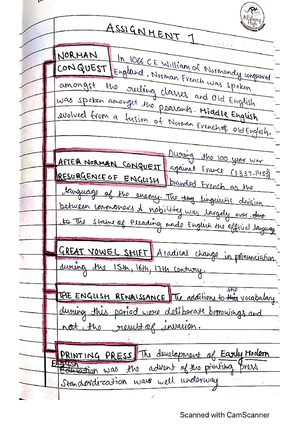 ASSIGNMENT 1
NORMAN CONQUEST
In 1066 C.E William of Normandy conquered
England. Norman French was spoken
amongst the ruling classes and Old English
was spoken amongst the peasants. Middle English
evolved from a fusion of Norman French & old English.
AFTER NORMAN CONQUEST
RESURGENCE OF ENGLISH
During the 100 year war
against France (1337-1453)
branded French as the
language of the enemy. The linguistic division
between commoners & nobility was largely over due
to The Statue of Pleading made English the official language
GREAT VOWEL SHIFT A radical change in pronunciation
during the 15th, 16th, 17th century.
THE ENGLISH RENAISSANCE The additions to the vocabulary
during this period were deliberate borrowings and
not the result of invasion.
PRINTING PRESS The development of Early Modern
English was the advent of the printing press
Standardization was well underway
Scanned with CamScanner